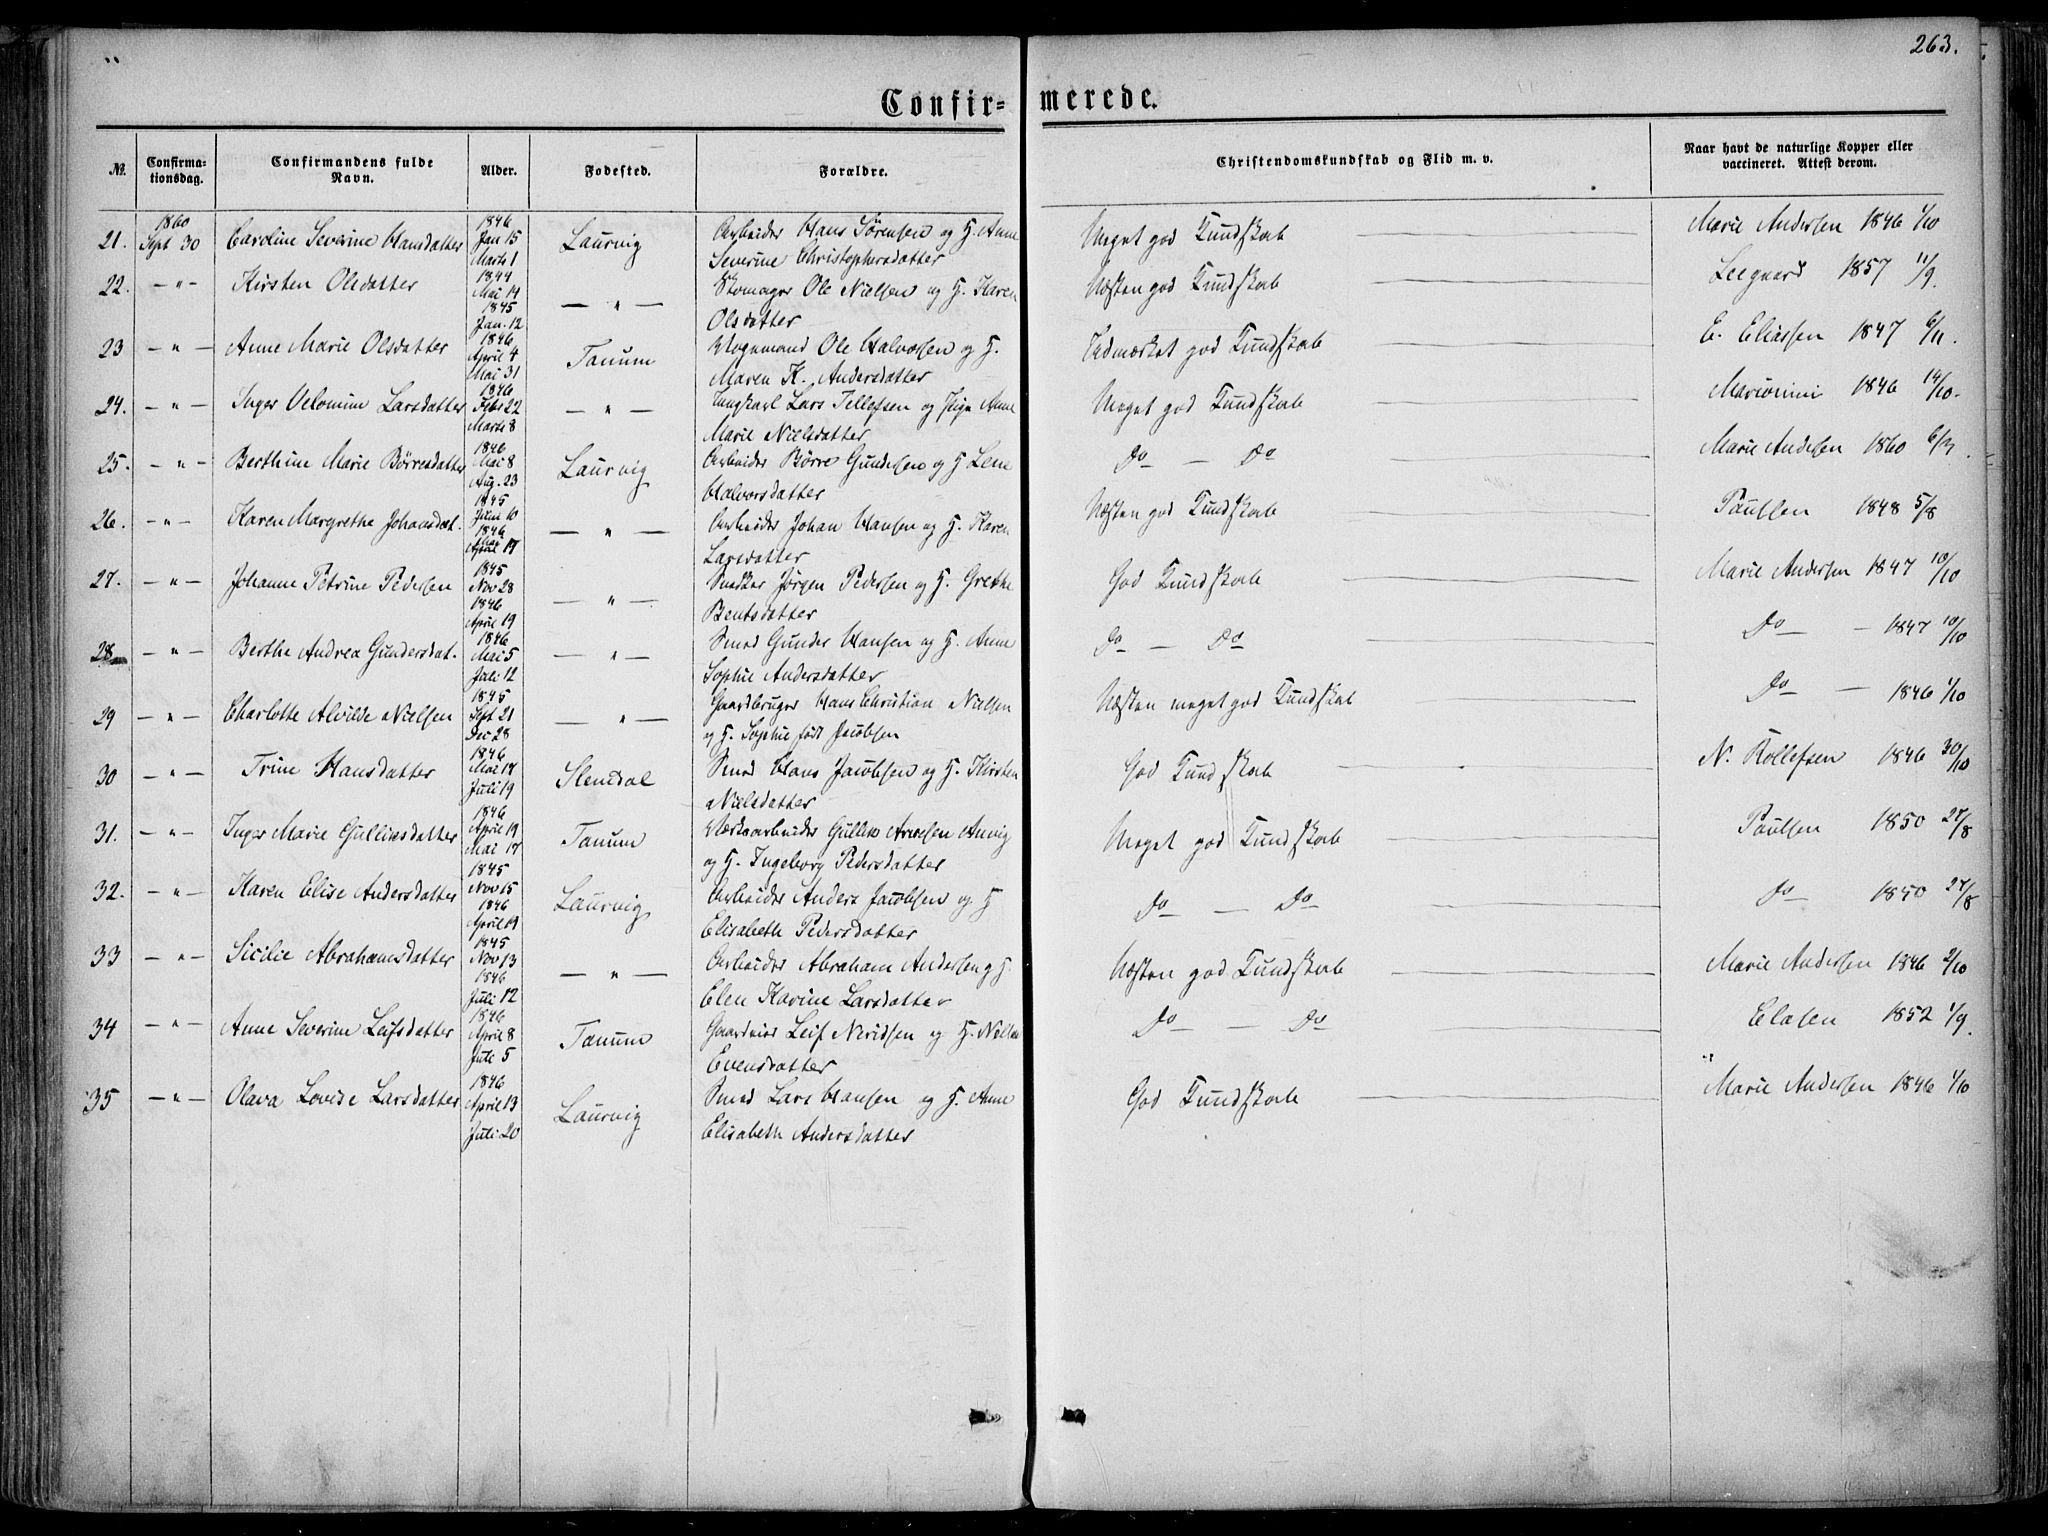 263.
Confir-
merede.
No.
Confirma-
tionsdag.
Confirmandens fulde
Navn.
Alder.
Fødested.
Forældre.
Christendomskundskab og Flid m. v.
Naar havt de naturlige Kopper eller
vaccineret. Attest derom.
21. 1860 Sept 30 Caroline Severine Hansdatter 1846 Jan 15 Marts 1 Laurvig Arbeider Hans Sörensen og H. Anne
Severine Christophersdatter Meget god Kundskab Marie Andersen 1846 1/10
22. — " — Kirsten Olsdatter 1844 Mai 14 1845 Jan. 12 — " — Skomager Ole Nielsen og H. Karen
Olsdatter Næsten god Kundskab Leegaard 1857 11/9.
23 — " — Anne Marie Olsdatter 1846 April 4 Mai 31 Tanum Vognmand Ole Halvorsen og H.
Maren K. Andersdatter Udmærket god Kundskab E. Eliassen 1847 6/11.
24. — " — Inger Velomine Larsdatter 1846 Febr 22 Marts 8 — " — Ungkarl Lars Tellefsen og Pige Anne
Marie Nielsdatter Meget god Kundskab 1846 14/10.
25. — " — Berthine Marie Börresdatter 1846 Mai 8 Aug. 23 Laurvig Arbeider Börre Gundersen og H Lene
Halvorsdatter Do — Do Marie Andersen 1860
26. — " — Karen Margrethe Johansdat. 1845 Juni 10 1846 April 17 — " — Arbeider Johan Hansen og H. Karen
Larsdatter Næsten god Kundskab Paulsen 1848 5/8
27. — " — Johanne Petrine Pedersen 1845 Nov 28 1846 April 19 — " — Snedker Jörgen Pedersen og H. Grethe
Bentsdatter God Kundskab Marie Andersen 1847 10/10
28. — " — Berthe Andrea Gundersdat. 1846 Mai 5 Juli 12 — " — Smed Gunder Hansen og H. Anne
Sophie Andersdatter Do — Do Do — — 1847 10/10
29 — " — Charlotte Alvilde Nielsen 1845 Sept 21 Dec 28 — " — Gaardbruger Hans Christian Nielsen
og H. Sophie født Jacobsen Næsten meget god Kundskab Do — 1846 1/10
30 — " — Trine Hansdatter 1846 Mai 17 Juli 19 Slemdal Smed Hans Jacobsen og H. Kirsten
Nielsdatter God Kundskab N. Rollefsen 1846 30/10
31. — " — Inger Marie Gulliksdatter 1846 April 19 Mai 17 Tanum Værksarbeider Gullik Arnesen Anvig
og H. Ingeborg Pedersdatter Meget god Kundskab Paulsen 1850 27/8
32. — " — Karen Elise Andersdatter 1845 Nov 15 1846 April 19 Laurvig Arbeider Anders Jacobsen og H
Elisabeth Pedersdatter Do — Do Do 1850 27/8
33 — " — Sicilie Abrahamsdatter 1845 Nov 13 1846 Juli 12 — " — Arbeider Abraham Andersen og H.
Elen Karine Larsdatter Næsten god Kundskab Marie Andersen 1846 2/10
34 — " — Anne Severine Leifsdatter 1846 April 8 Juli 5 Tanum Leif og H.
Evensdatter Do — Do 1852 1/9.
35 — " — Olava Lovise Larsdatter 1846 April 13 Juli 20 Laurvig Smed Lars Hansen og H. Anne
Elisabeth Andersdatter God Kundskab Marie Andersen 1846 1/10